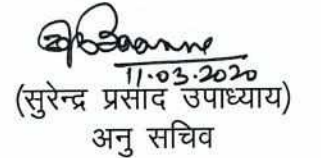 11.03.2020
(सुरेन्द्र प्रसाद उपाध्याय)
अनु सचिव